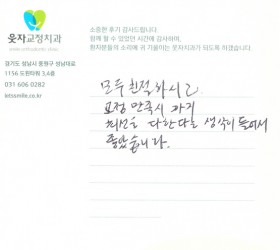 웃자교정치과
경기도 성남시 중원구 성남대로
1156 도원타워 3,4층
031 606 0282
소중한 후기 감사드립니다.
함께 할 수 있었던 시간에 감사하며,
환자분들의 소리에 귀 기울이는 웃자치과가 되도록 하겠습니다.
모두 친절하시고
교정 만족시 까지
최선을 다한다는 생각이 들어서
좋았습니다.